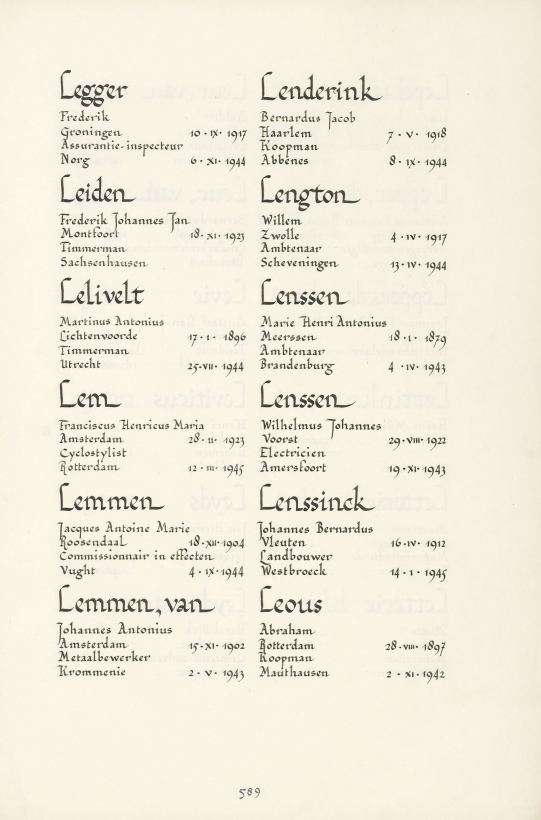 Legger
Frederik
Groningen 10 · IX · 1917
Assurantie-inspecteur
Norg 6 · XI · 1944
Leiden
Frederik Johannes Jan
Montfoort 18 · XI · 1923
Timmerman
Sachsenhausen
Lelivelt
Martinus Antonius
Lichtenvoorde 17 · I · 1896
Timmerman
Utrecht 25 · VII · 1944
Lem
Franciscus Henricus Maria
Amsterdam 28 · II · 1923
Cyclostylist
Rotterdam 12 · III · 1945
Lemmen
Jacques Antoine Marie
Roosendaal 18 · XII · 1904
Commissionnair in effecten
Vught 4 · IX · 1944
Lemmen, van
Johannes Antonius
Amsterdam 15 · XI · 1902
Metaalbewerker
Krommenie 2 · V · 1943
Lenderink
Bernardus Jacob
Haarlem 7 · V · 1918
Koopman
Abbenes 8 · IX · 1944
Lengton
Willem
Zwolle 4 · IV · 1917
Ambtenaar
Scheveningen 13 · IV · 1944
Lenssen
Marie Henri Antonius
Meerssen 18 · I · 1879
Ambtenaar
Brandenburg 4 · IV · 1943
Lenssen
Wilhelmus Johannes
Voorst 29 · VIII · 1922
Electricien
Amersfoort 19 · XI · 1943
Lenssinck
Johannes Bernardus
Vleuten 16 · IV · 1912
Landbouwer
Westbroeck 14 · I · 1945
Leous
Abraham
Rotterdam 28 · VIII · 1897
Koopman
Mauthausen 2 · XI · 1942
589